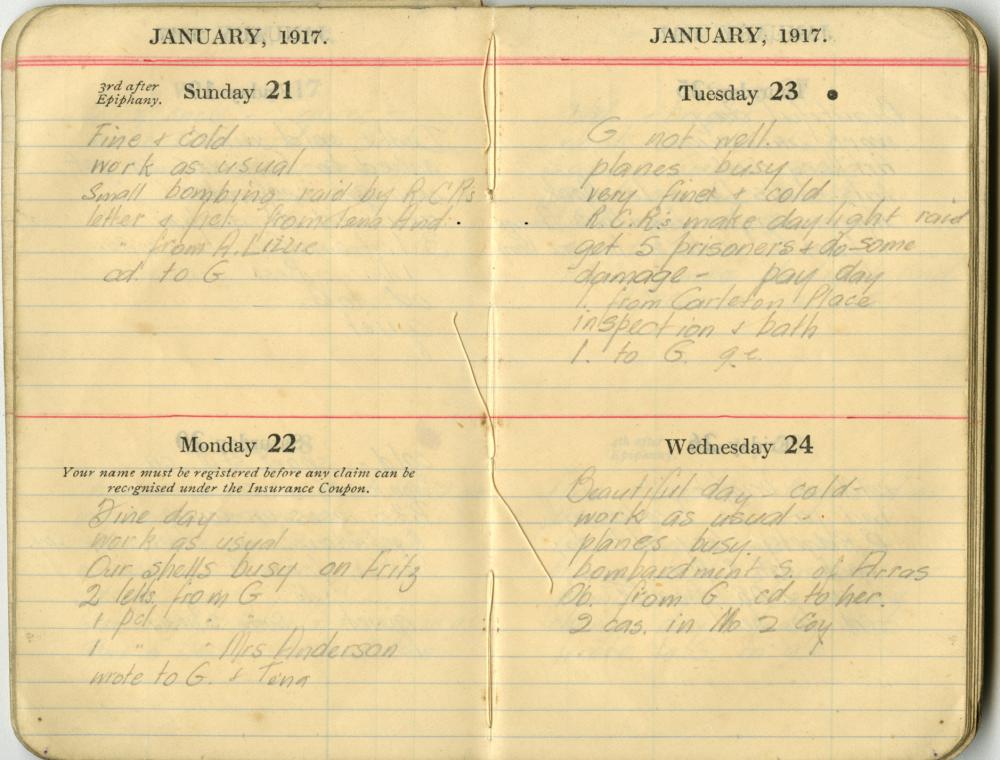 JANUARY, 1917.
3rd after
Epiphany.
Sunday 21
Fine & cold
work as usual
Small bombing raid by R.C.R's
letter & from Tena And
" from A. Lizzie
cd. to G
Monday 22
Your name must be registered before any claim can be
recognised under the Insurance Coupon.
Fine day
work as usual
Our shells busy on Fritz
2 lets. from G
1 pcl. "
1 " " Mrs Anderson
wrote to G. & Tena
JANUARY, 1917.
Tuesday 23
G not well.
planes busy
very fine & cold
R.C.R's make daylight raid
get 5 prisoners & do some
damage - pay day
1. from Carleton Place
inspection & bath
1. to G.
Wednesday 24
Beautiful day - cold -
work as usual -
planes busy.
bombardment S. of Arras
Ob. from G cd. to her.
2 cas. in No 2 Coy